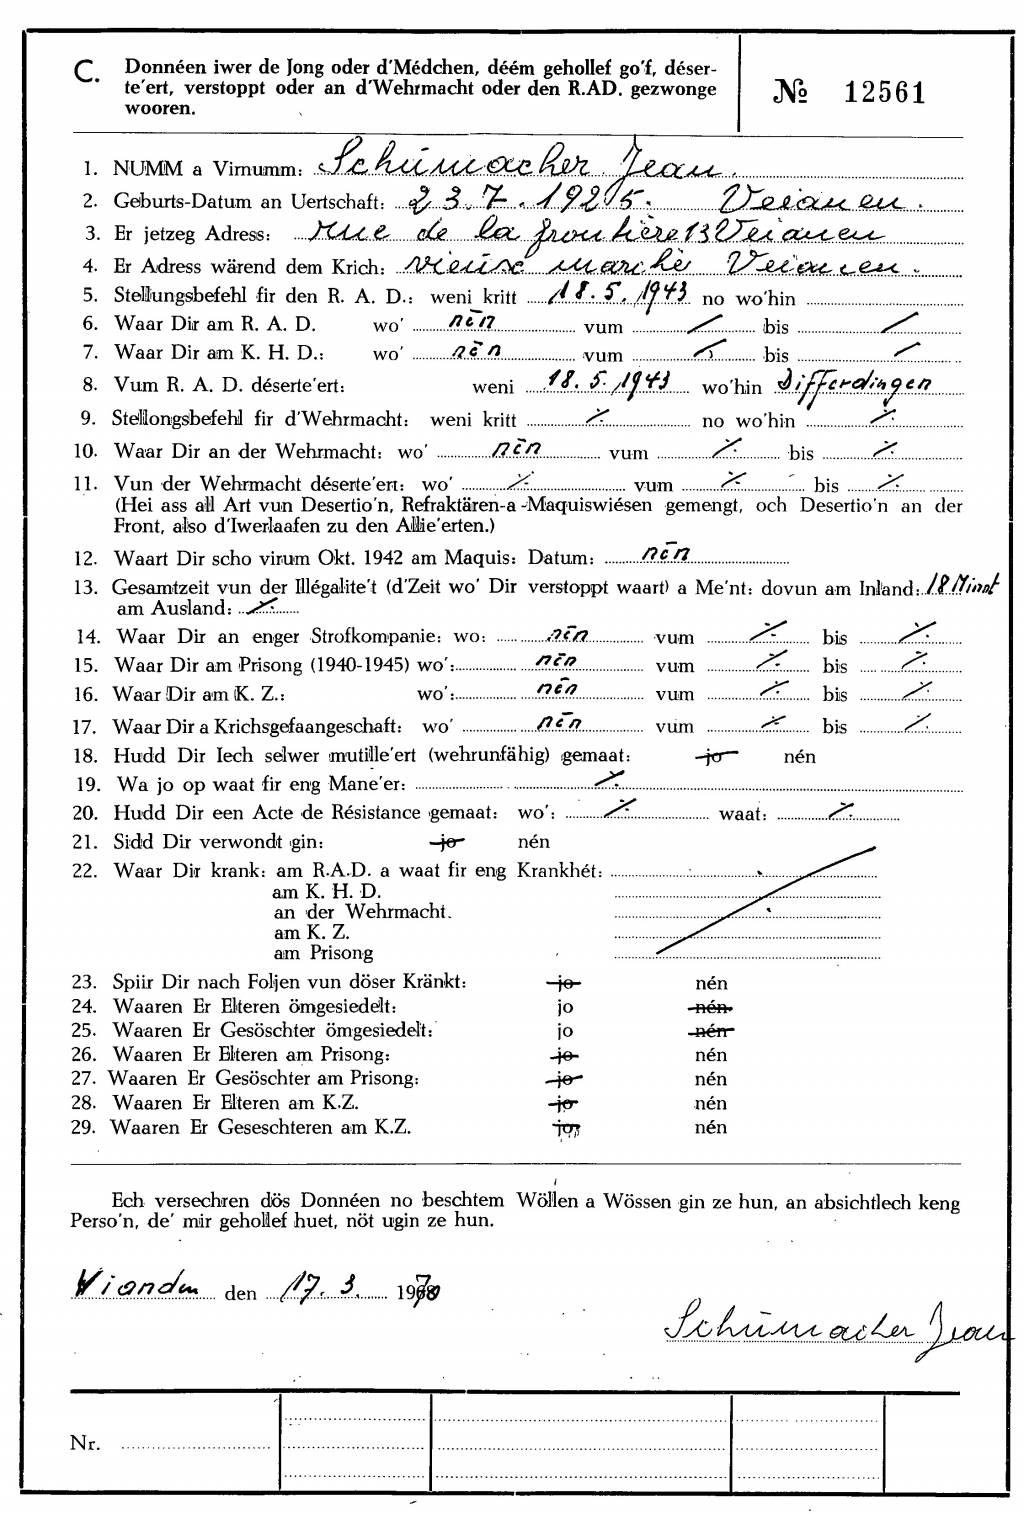 C. Donnéen iwer de Jong oder d'Médchen, déém gehollef go'f, déser-
te'ert, verstoppt oder an d'Wehrmacht oder den R.AD. gezwonge
wooren.
№ 12561
1. NUMM a Virnumm: Schümacher Jean.
2. Geburts-Datum an Uertschaft: 23.7.1925. Veianen.
3. Er jetzeg Adress: rue de la frontière 13 Veianen
4. Er Adress wärend dem Krich: vieuse marchè Veianen.
5. Stellungsbefehl fir den R. A. D.: weni kritt 18.5.1943 no wo'hin
6. Waar Dir am R. A. D. wo' nēn vum / bis /
7. Waar Dir am K. H. D.: wo' nēn vum / bis /
8. Vum R. A. D. déserte'ert: weni 18.5.1943 wo'hin Differdingen
9. Stellongsbefehl fir d'Wehrmacht: weni kritt ·/. no wo'hin ·/.
10. Waar Dir an der Wehrmacht: wo' nēn vum ·/. bis ·/.
11. Vun der Wehrmacht déserte'ert: wo' ·/. vum ·/. bis ·/.
(Hei ass all Art vun Desertio'n, Refraktären-a-Maquiswiésen gemengt, och Desertio'n an der
Front, also d'Iwerlaafen zu den Allie'erten.)
12. Waart Dir scho virum Okt. 1942 am Maquis: Datum: nēn
13. Gesamtzeit vun der Illégalite't (d'Zeit wo' Dir verstoppt waart) a Me'nt: dovun am Inland: 18 Minnt
am Ausland: ·/.
14. Waar Dir an enger Strofkompanie: wo: nēn vum ·/. bis ·/.
15. Waar Dir am Prisong (1940-1945) wo': nēn vum ·/. bis ·/.
16. Waar Dir am K. Z.: wo': nēn vum ·/. bis ·/.
17. Waar Dir a Krichsgefaangeschaft: wo' nēn vum ·/. bis ·/.
18. Hudd Dir Iech selwer mutille'ert (wehrunfähig) gemaat: jo nén
19. Wa jo op waat fir eng Mane'er: ·/.
20. Hudd Dir een Acte de Résistance gemaat: wo': ·/. waat: ·/.
21. Sidd Dir verwondt gin: jo nén
22. Waar Dir krank: am R.A.D. a waat fir eng Krankhét:
am K. H. D.
an der Wehrmacht.
am K. Z.
am Prisong
23. Spiir Dir nach Foljen vun döser Kränkt: jo nén
24. Waaren Er Elteren ömgesiedelt: jo nén.
25. Waaren Er Gesöschter ömgesiedelt: jo nén
26. Waaren Er Elteren am Prisong: jo nén
27. Waaren Er Gesöschter am Prisong: jo nén
28. Waaren Er Elteren am K.Z. jo nén
29. Waaren Er Geseschteren am K.Z. jo nén
Ech versechren dös Donnéen no beschtem Wöllen a Wössen gin ze hun, an absichtlech keng
Perso'n, de' mir gehollef huet, nöt ugin ze hun.
Vianden den 17. 3. 1970
Schümacher Jean
Nr.